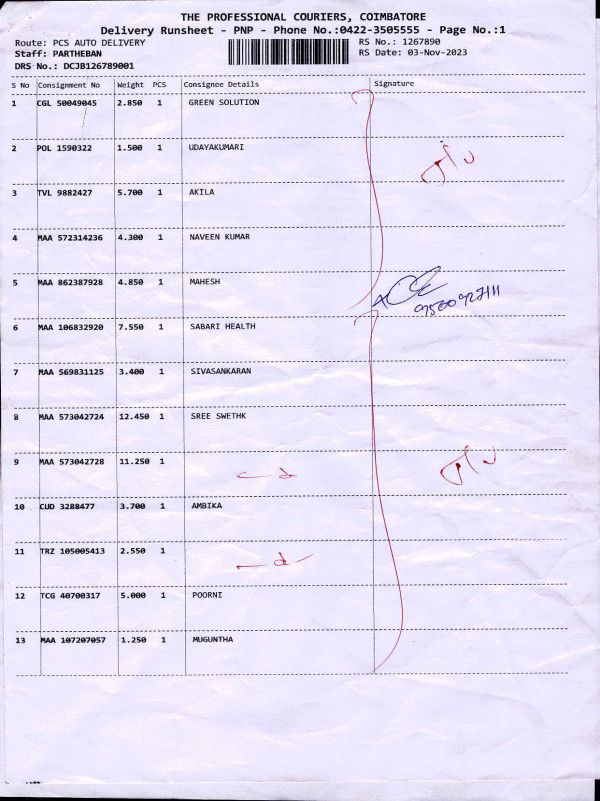 THE PROFESSIONAL COURIERS, COIMBATORE
Delivery Runsheet - PNP - Phone No.:0422-3505555 - Page No.:1
Route: PCS AUTO DELIVERY RS No.: 1267890
Staff: PARTHEBAN RS Date: 03-Nov-2023
DRS No.: DCJB126789001
S No Consignment No Weight PCS Consignee Details Signature
1 CGL 50049045 2.850 1 GREEN SOLUTION
2 POL 1590322 1.500 1 UDAYAKUMARI
3 TVL 9882427 5.700 1 AKILA
4 MAA 572314236 4.300 1 NAVEEN KUMAR
5 MAA 862387928 4.850 1 MAHESH
6 MAA 106832920 7.550 1 SABARI HEALTH
7 MAA 569831125 3.400 1 SIVASANKARAN
8 MAA 573042724 12.450 1 SREE SWETHK
9 MAA 573042728 11.250 1
10 CUD 3288477 3.700 1 AMBIKA
11 TRZ 105005413 2.550 1
12 TCG 40700317 5.000 1 POORNI
13 MAA 107207057 1.250 1 MUGUNTHA